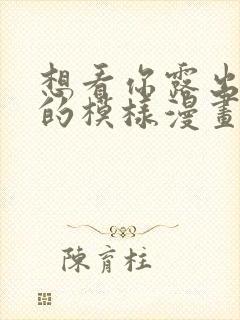 想看你露出
的模樣漫畫
陳育柱